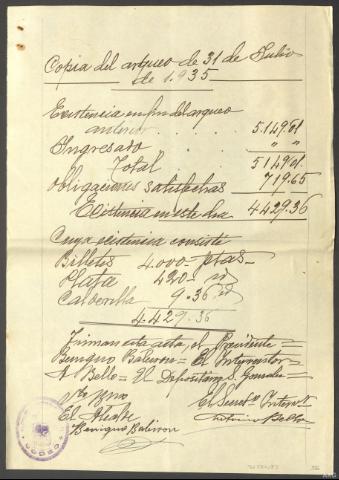 Copia del arqueo de 31 de Julio
de 1.935
Existencia en fin del arqueo
anterior . . . . 5.149.01
Ingresado . . . " "
Total 5149.01
Obligaciones satisfechas 719.65
Existencia en este dia 4429.36
Cuya existencia consiste
Billetes 4.000 - ptas -
Plata 420 - id
Calderilla 9.36 id
4.429.36
Firman esta acta, el Presidente =
Benigno = El Interventor =
A Bello = El Depositario S. Gonzalez =
El Alcalde El Secretº Intervr
Benigno Antonio Bello